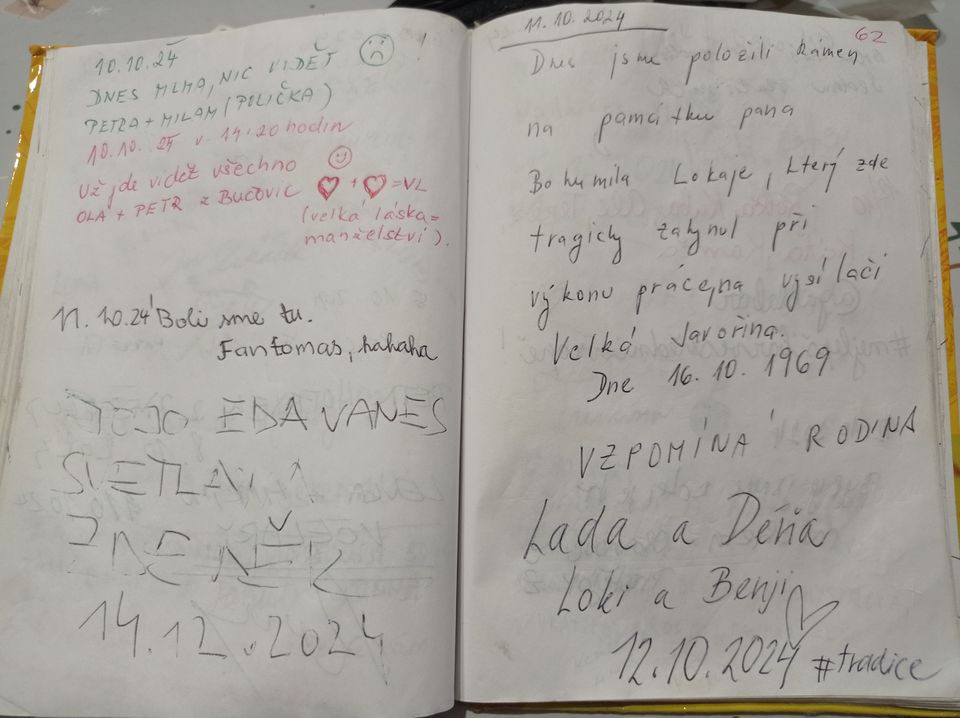 10.10.24
DNES MLHA, NIC VIDĚT
PETRA + MILAN (POLIČKA)
10.10. 24 v 14:20 hodin
Už jde videt všechno
OLA + PETR z BUČOVIC + = VL
(velká láska =
manželství).
11.10.24 Boli sme tu.
Fantomas, hahaha
JOJO EDA VANES
SVETLAN
ZDENĚK
14.12.2024
11.10.2024
62
Dnes jsme položili kámen
na památku pana
Bohumila Lokaje, který zde
tragicky zahynul při
výkonu práce na vysílači
Velká Javořina.
Dne 16.10. 1969
VZPOMÍNÁ RODINA
Lada a Déňa
Loki a Benji
12.10.2024 #tradice